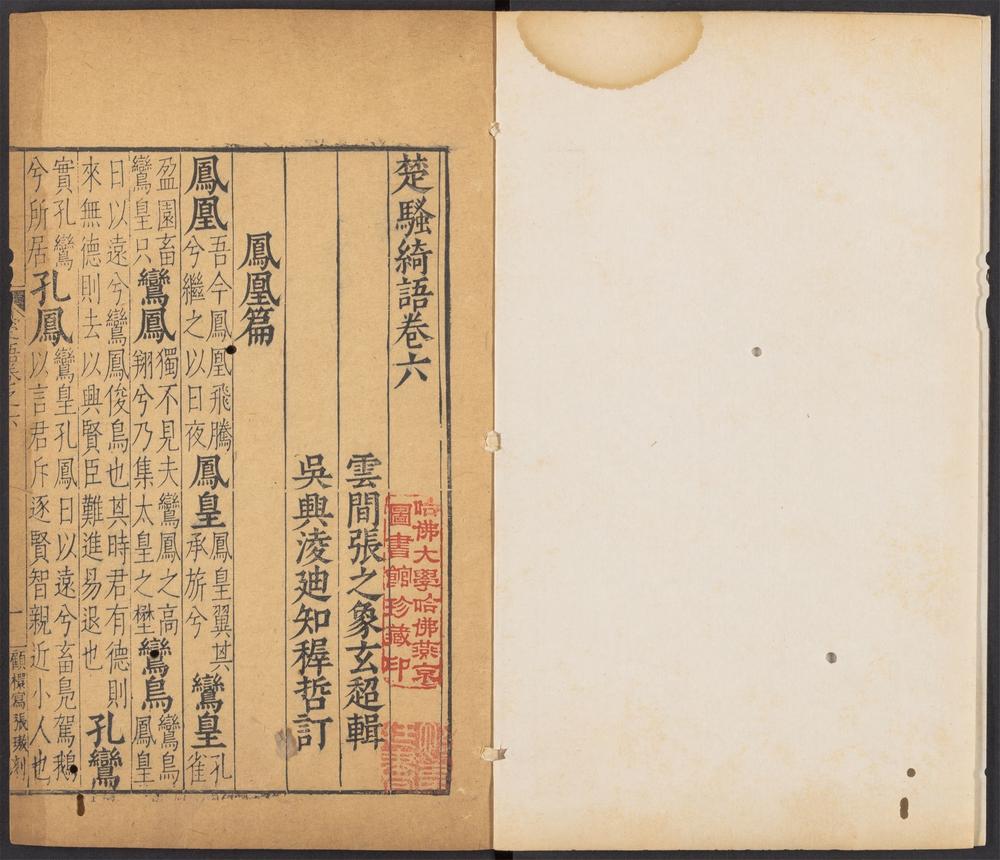 楚騷綺語卷六
雲間張之象玄超輯
吳興淩廸知稺哲訂
鳳凰篇
鳳凰吾令鳳凰飛騰兮繼之以日夜鳳皇鳳皇翼其承旂兮鸞皇孔雀
盈園畜鸞皇只鸞鳳獨不見夫鸞鳳之高翔兮乃集太皇之壄鸞鳥鸞鳥鳳皇
日以遠兮鸞鳳俊鳥也其時君有德則來無德則去以興賢臣難進易退也孔鸞
實孔鸞兮所居孔鳳鸞皇孔鳳日以遠兮畜鳧駕鵝以言君斥逐賢智親近小人也
一
哈佛大學哈佛燕京
圖書館珍藏印